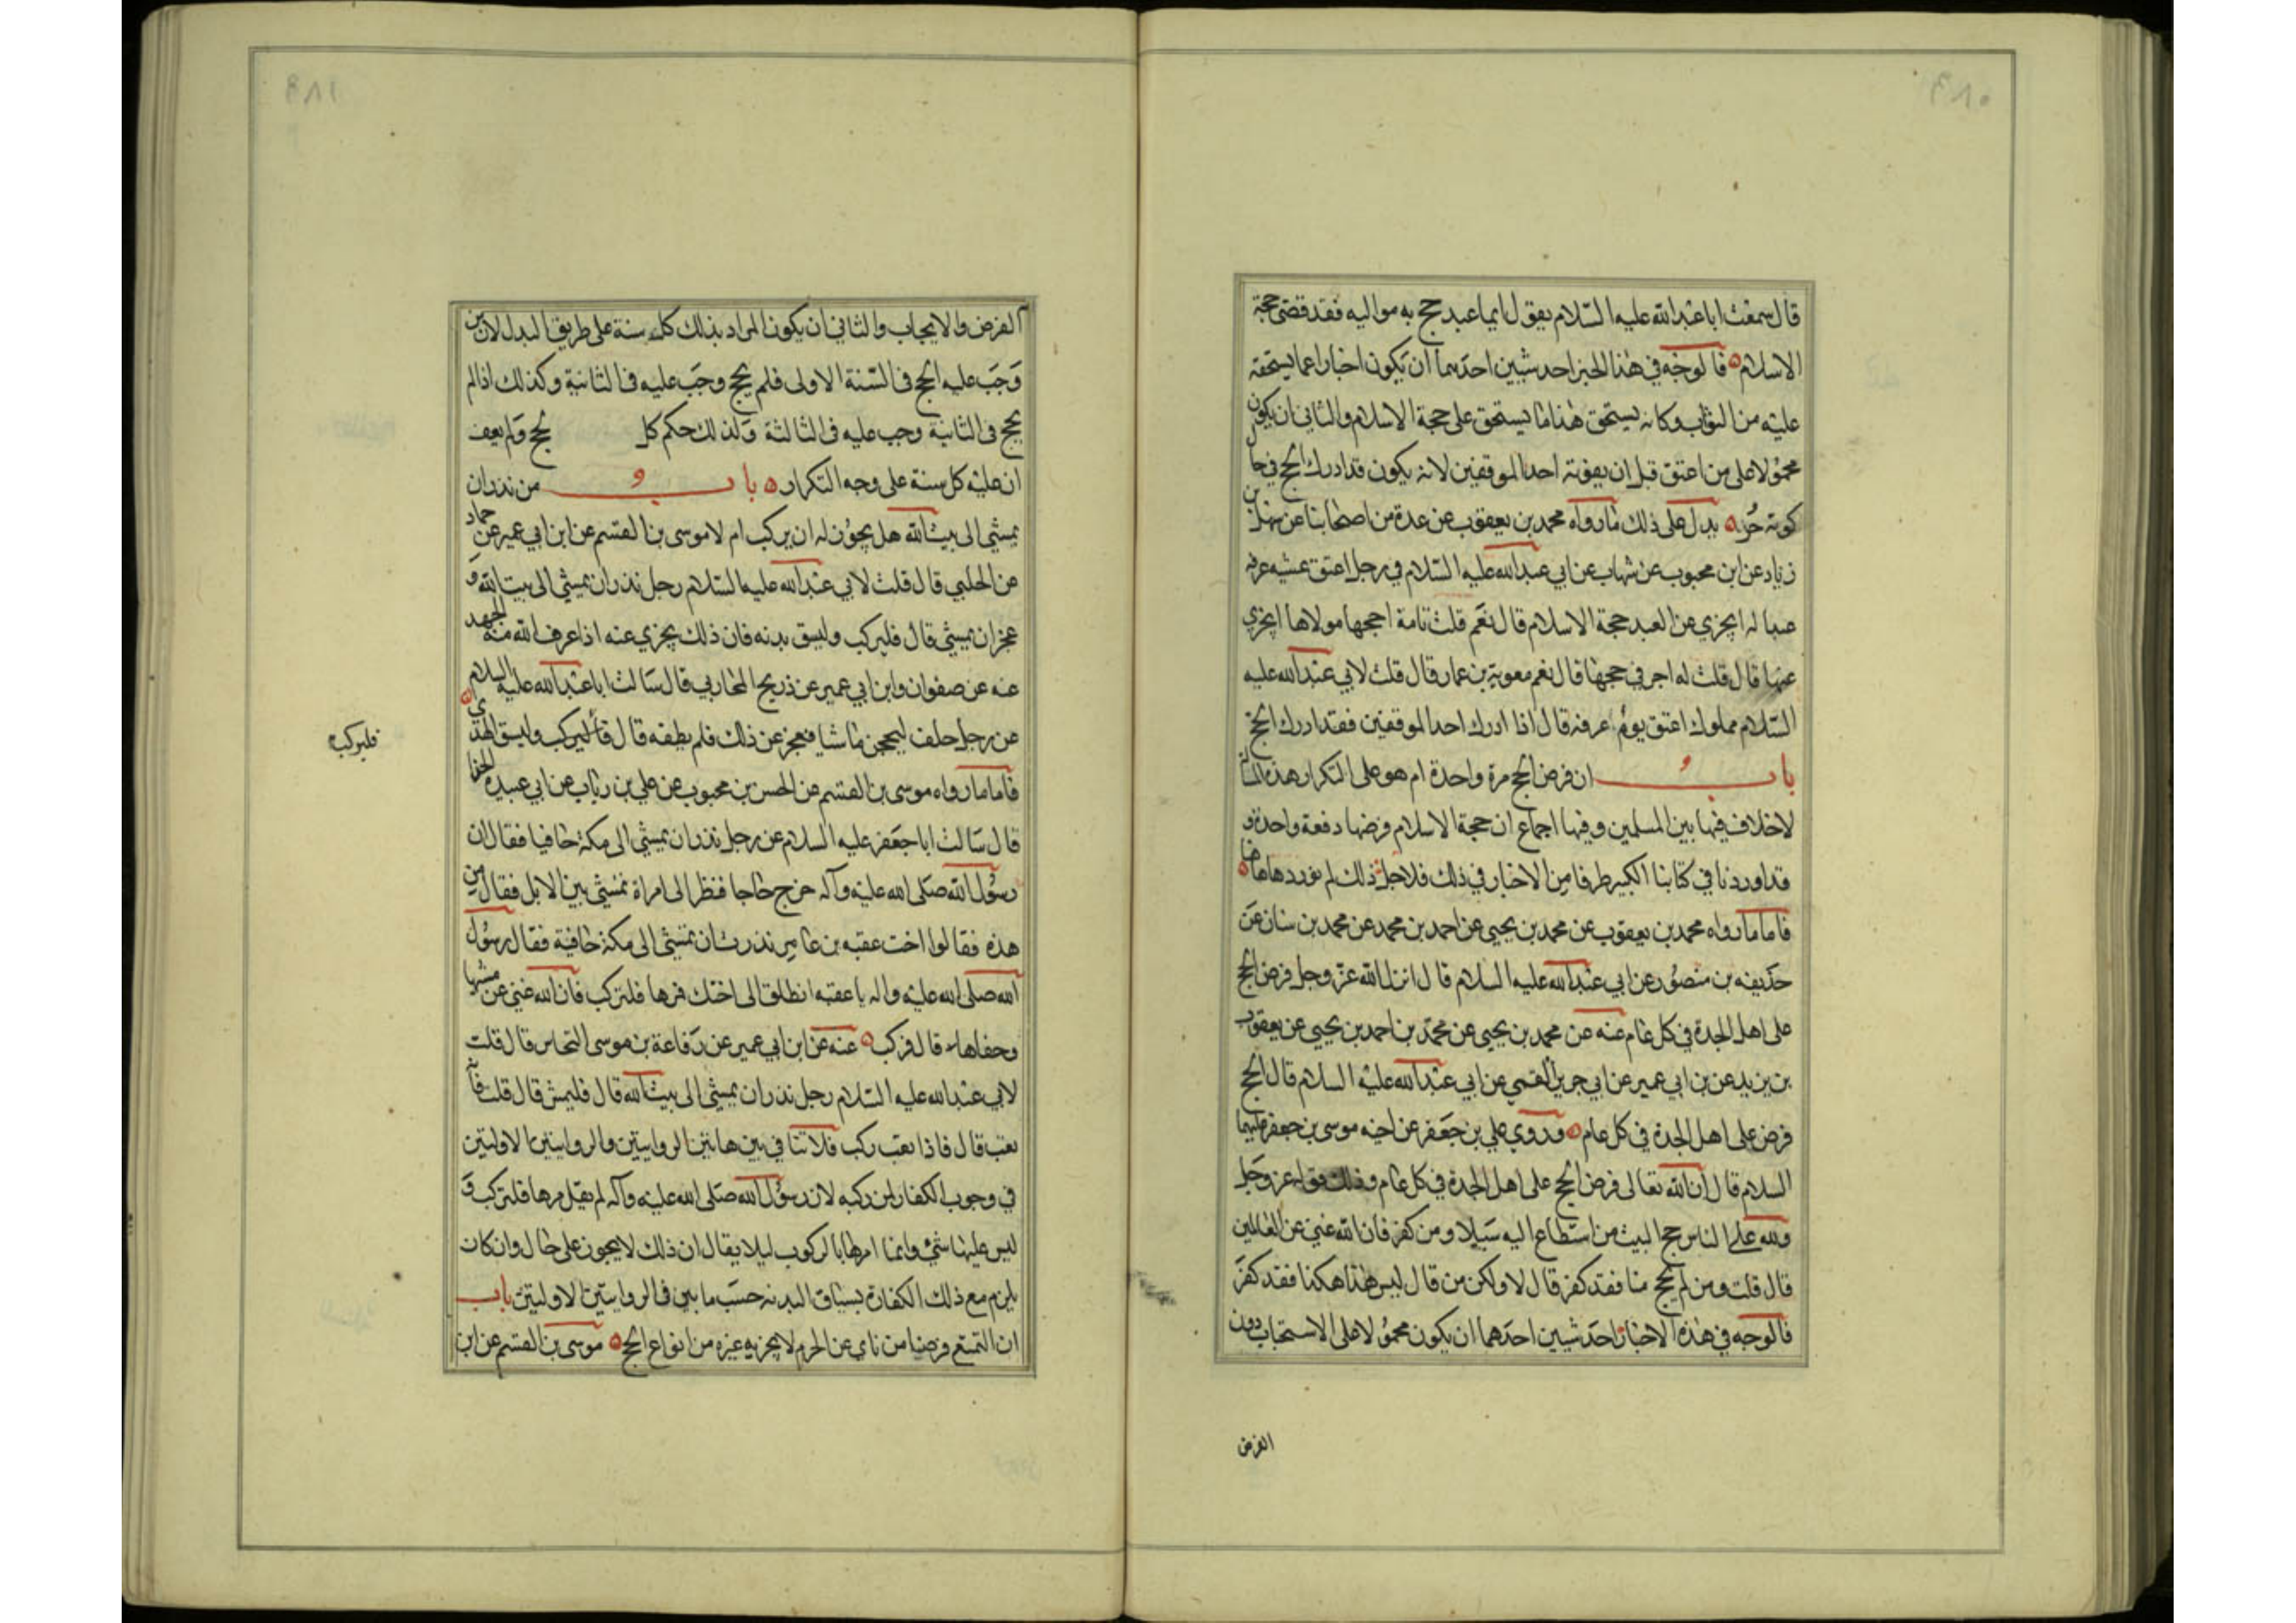 قال سمعت ابا عبد الله عليه السلام يقول ايما عبد حج به مواليه فقد قضى حجة
الاسلام فالوجه في هذا الخبر احد شيئين احدهما ان يكون اخبارا عما يستحقه
عليه من الثواب وكانه يستحق هذا ما يستحق على حجة الاسلام والثاني ان يكون
محمولا على من اعتق قبل ان يفوته احد الموقفين لانه يكون قد ادرك الحج في حال
كونه حرا يدل على ذلك ما رواه محمد بن يعقوب عن عدة من اصحابنا عن سهل بن
زياد عن ابن محبوب عن شهاب عن ابي عبد الله عليه السلام في رجل اعتق عشيه عرفه
عبدا له ايجزي عن العبد حجة الاسلام قال نعم قلت امة احجها مولاها ايجزي
عنها قال قلت له اجر في حجها قال نعم معوية بن عمار قال قلت لابي عبد الله عليه
السلام مملوك اعتق يوم عرفه قال اذا ادرك احد الموقفين فقد ادرك الحج
باب ان فرض الحج مرة واحدة ام هو على التكرار هذه المسألة
لا خلاف فيها بين المسلمين وفيها اجماع ان حجة الاسلام فرضها دفعة واحدة و
قد اوردنا في كتابنا الكبير طرفا من الاخبار في ذلك فلاجل ذلك لم نوردها هاهنا
فاما ما رواه محمد بن يعقوب عن محمد بن يحيى عن احمد بن محمد عن محمد بن سنان عن
حذيفه بن منصور عن ابي عبد الله عليه السلام قال انزل الله عز وجل فرض الحج
على اهل الجدة في كل عام عنه عن محمد بن يحيى عن محمد بن احمد بن يحيى عن يعقوب
بن يزيد عن بن ابي عمير عن ابي جرير القمي عن ابي عبد الله عليه السلام قال الحج
فرض على اهل الجدة في كل عام وروي علي بن جعفر عن اخيه موسى بن جعفر عليهما
السلام قال ان الله تعالى فرض الحج على اهل الجدة في كل عام وذلك قوله عز وجل
ولله على الناس حج البيت من استطاع اليه سبيلا ومن كفر فان الله غني عن العالمين
قال قلت ومن لم يحج منا فقد كفر قال لا ولكن من قال ليس هذا هكذا فقد كفر
فالوجه في هذه الاخبار احد شيئين احدهما ان يكون محمولا على الاستحباب دون
الفرض
الفرض والايجاب والثاني ان يكون المراد بذلك كل سنة على طريق البدل لان من
وجب عليه الحج في السنة الاولى فلم يحج وجب عليه في الثانية وكذلك اذا لم
يحج في الثانية وجب عليه في الثالثة وكذلك حكم كل يحج ولم يعف
ان عليه كل سنة على وجه التكرار باب من نذر ان
يمشي الى بيت الله هل يجوز له ان يركب ام لا موسى بن القسم عن ابن ابي عمير عن حماد
عن الحلبي قال قلت لابي عبد الله عليه السلام رجل نذر ان يمشي الى بيت الله و
عجز ان يمشي قال فليركب وليسق بدنه فان ذلك يجزي عنه اذا عرف الله منه الجهد
عنه عن صفوان وابن ابي عمير عن ذريح المحاربي قال سالت ابا عبد الله عليه السلام
عن رجل حلف ليحجن ماشيا فعجز عن ذلك فلم يطقه قال فليركب وليسق الهدي
فليركب
فاما ما رواه موسى بن القسم عن الحسن بن محبوب عن علي بن رياب عن ابي عبيدة الحذا
قال سالت ابا جعفر عليه السلام عن رجل نذر ان يمشي الى مكة حافيا فقال ان
رسول الله صلى الله عليه وآله خرج حاجا فنظر الى امراة تمشي بين الابل فقال من
هذه فقالوا اخت عقبه بن عامر نذرت ان تمشي الى مكة حافية فقال رسول
الله صلى الله عليه واله يا عقبه انطلق الى اختك فمرها فلتركب فان الله غني عن مشيها
وحفاها قال فركب عنه عن ابن ابي عمير عن رفاعة بن موسى النحاس قال قلت
لابي عبد الله عليه السلام رجل نذر ان يمشي الى بيت الله قال فليمش قال قلت فانه
تعب قال فاذا تعب ركب فلا تنافي بين هاتين الروايتين والروايتين الاوليتين
في وجوب الكفار لمن ركبه لان رسول الله صلى الله عليه وآله لم يقل مرها فلتركب و
ليس عليها شئ وانما امرها بالركوب ليلا يقال ان ذلك لا يجوز على حال وان كان
يلزم مع ذلك الكفارة بسياق البدنه حسب ما بين في الروايتين الاوليتين باب
ان التمتع فرض من ناي عن الحرم لا يجزيه غيره من انواع الحج موسى بن القسم عن ابن